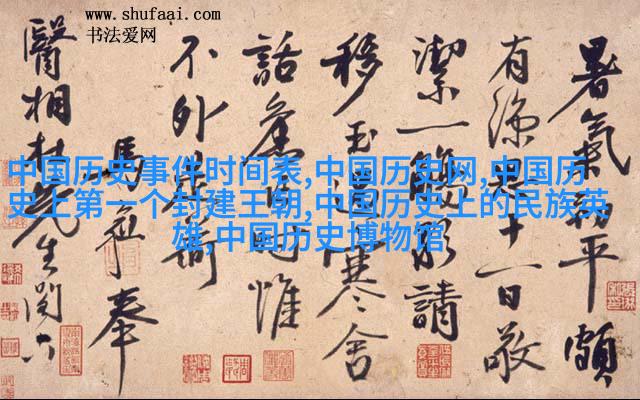 www.shufaai.com
书法爱网
中国历史事件时间表,中国历史网,中国历
史上第一个封建王朝,中国历史上的民族英
雄,中国历史博物馆
暑氣初平頗
有涼思十一日敬
潔一觴請
移玉過寒舍
話舊惟
不外
奉
醫相杜先生閣下